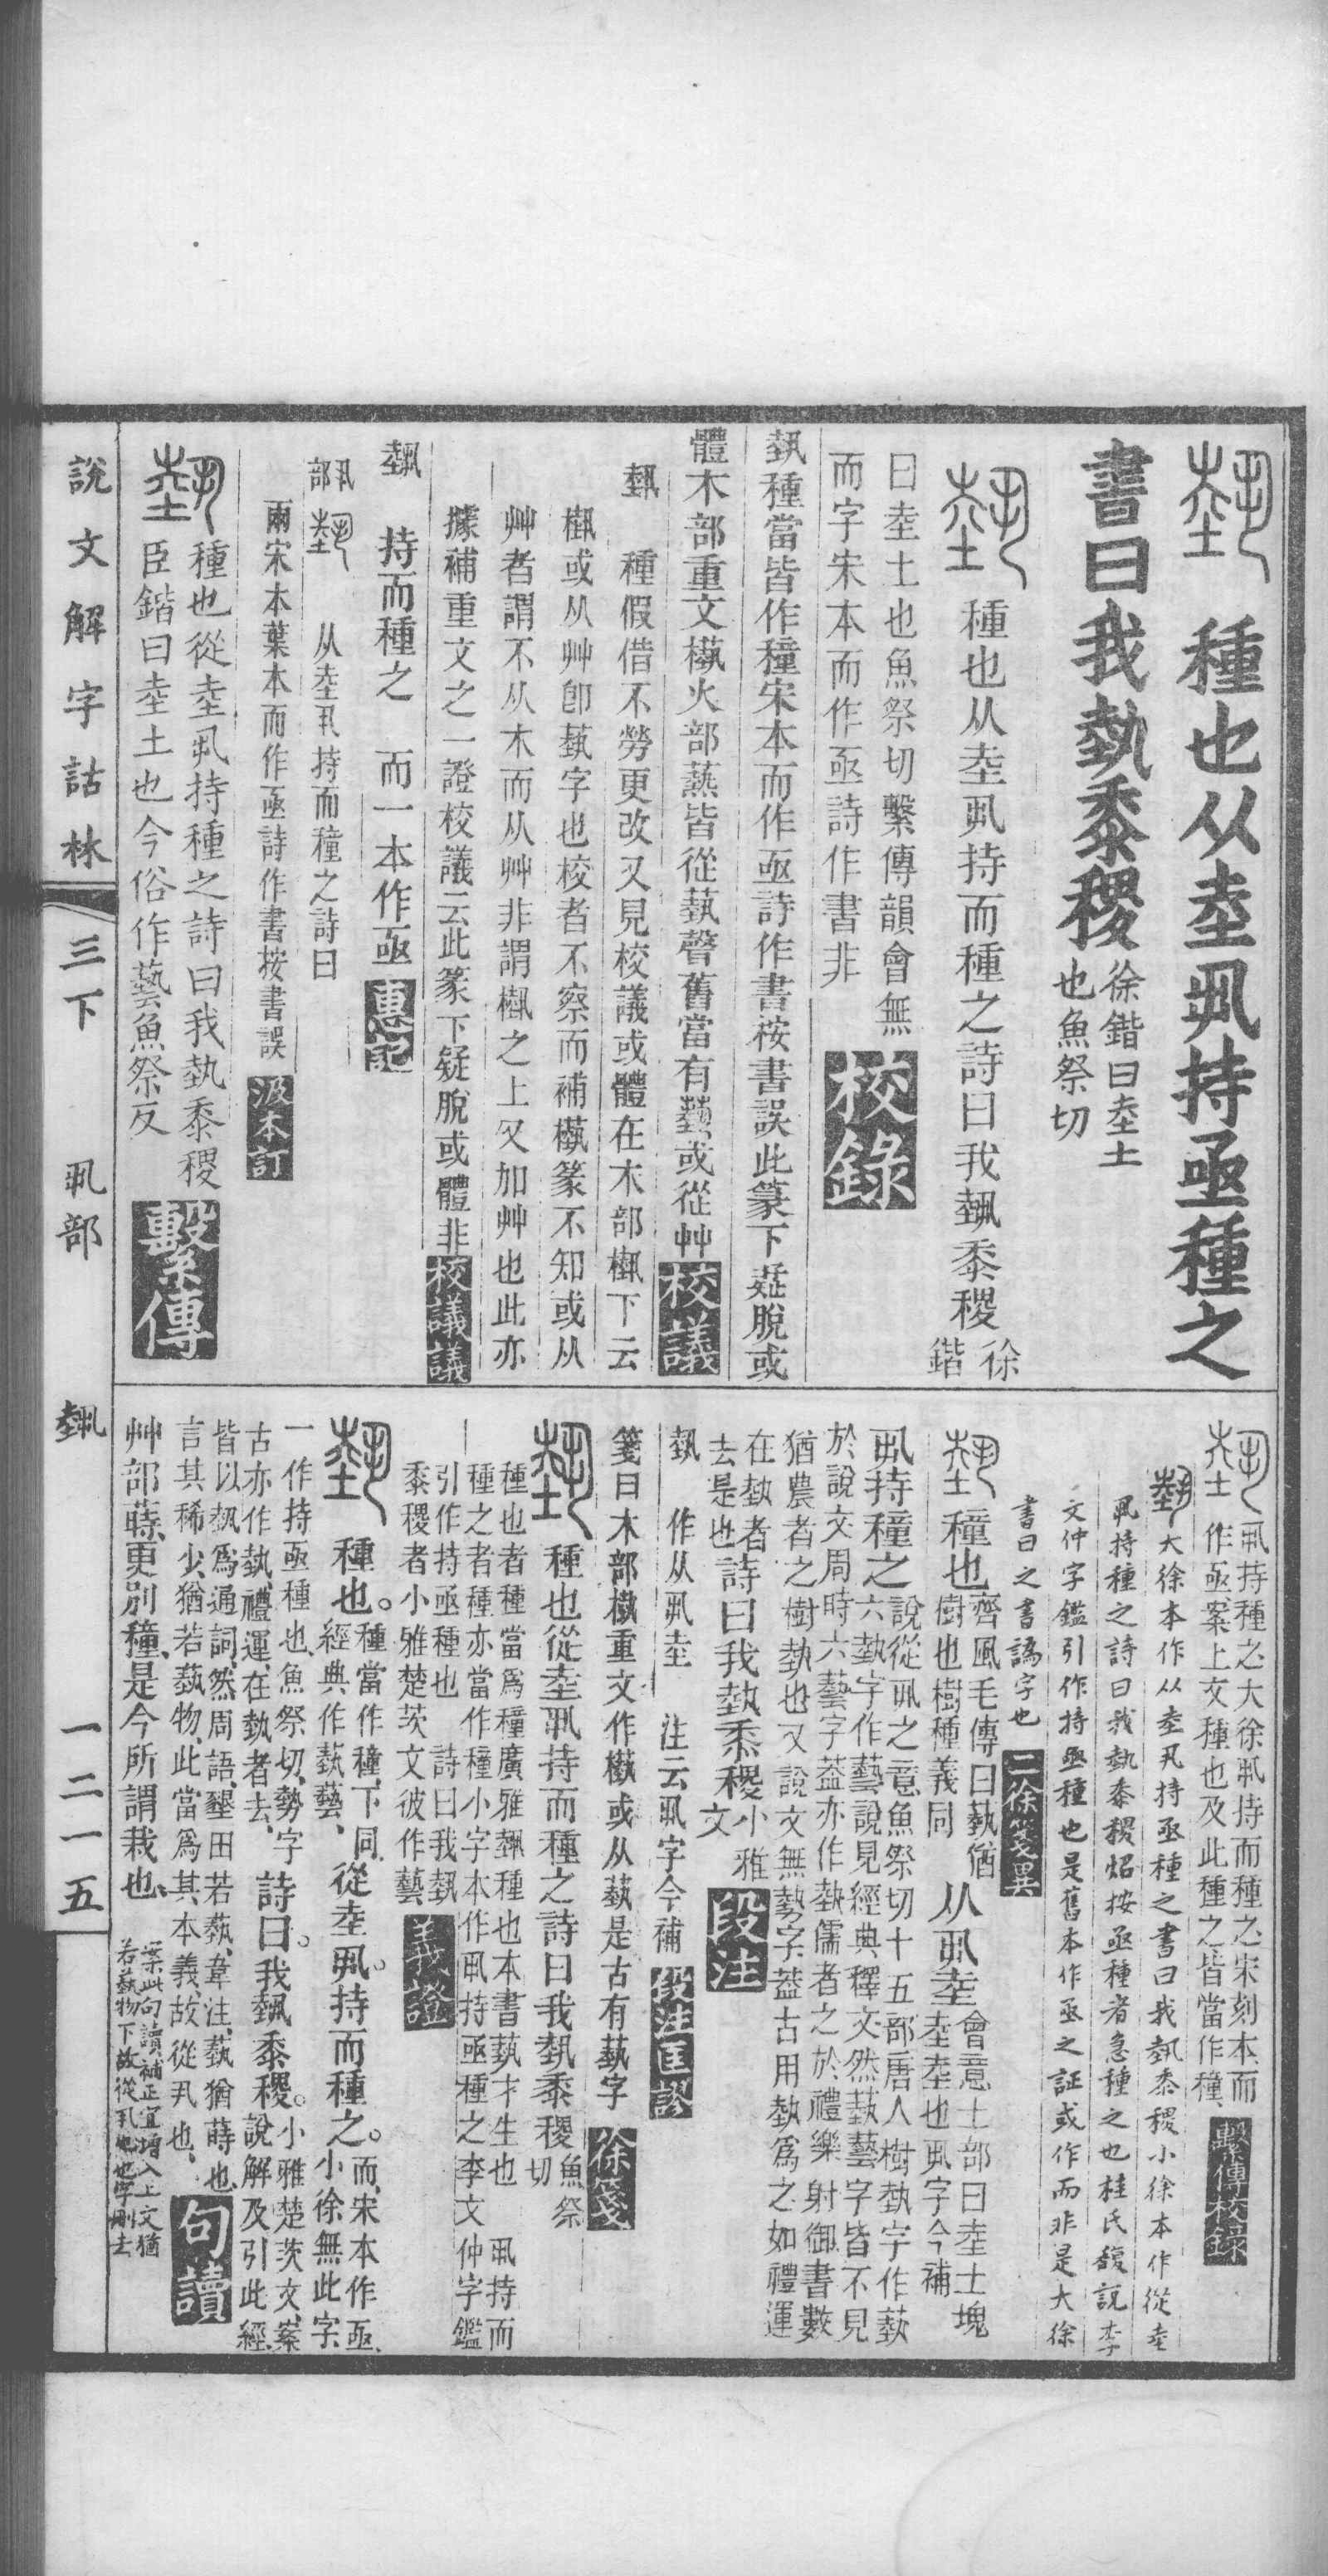 種也从坴丮持亟種之
書曰我埶黍稷徐鍇曰坴土
也魚祭切
種也从坴丮持而種之詩曰我埶黍稷徐
鍇
曰坴土也魚祭切繫傳韻會無
而字宋本而作亟詩作書非
校錄
埶種當皆作穜宋本而作亟詩作書桉書誤此篆下疑脫或
體木部重文槸火部爇皆從蓺聲舊當有蓺或從艸
校議
埶
種假借不勞更改又見校議或體在木部槸下云
槸或从艸卽蓺字也校者不察而補篆不知或从
艸者謂不从木而从艸非謂槸之上又加艸也此亦
據補重文之一證校議云此篆下疑脫或體非
校議議
埶
持而種之 而一本作亟
惠記
丮部
从坴丮持而穜之詩曰
兩宋本葉本而作亟詩作書按書誤
汲本訂
種也從坴丮持種之詩曰我埶黍稷
臣鍇曰坴土也今俗作藝魚祭反
繫傳
丮持種之大徐丮持而種之宋刻本而
作亟案上文種也及此種之皆當作穜
繫傳校錄
大徐本作从坴丮持亟種之書曰我埶黍稷小徐本作從坴
丮持種之詩曰我埶黍稷炤按亟種者急種之也桂氏馥說李
文仲字鑑引作持亟種也是舊本作亟之証或作而非是大徐
書曰之書譌字也
二徐箋異
穜也齊風毛傳曰埶猶
樹也樹種義同从丮坴會意土部曰坴土塊
坴坴也丮字今補
丮持穜之說從丮之意魚祭切十五部唐人樹埶字作蓺
六埶字作藝說見經典釋文然蓺藝字皆不見
於說文周時六藝字葢亦作埶儒者之於禮樂射御書數
猶農者之樹埶也又說文無勢字葢古用埶爲之如禮運
在埶者
去是也詩曰我埶黍稷小雅
文
段注
埶
作从丮坴 注云丮字今補
段注匡謬
箋曰木部槸重文作或从蓺是古有蓺字
徐箋
種也從坴丮持而種之詩曰我埶黍稷魚祭
切
種也者種當爲穜廣雅埶種也本書蓺才生也 丮持而
種之者種亦當作穜小字本作丮持亟種之李文仲字鑑
引作持亟種也 詩曰我埶
黍稷者小雅楚茨文彼作藝
義證
種也。種當作穜、下同、
經典作蓺藝、從坴丮。持而種之。而、宋本作亟、
小徐無此字、
一作持亟種也、魚祭切、勢字
古亦作埶、禮運、在埶者去、詩曰。我埶黍稷。小雅楚茨文、案
說解及引此經、
皆以埶爲通詞、然周語、墾田若蓺、韋注、蓺猶蒔也、
言其稀少、猶若蓺物、此當爲其本義、故從丮也、
艸部蒔、更別穜、是今所謂栽也、
句讀
案此句讀補正宜增入上文猶
若蓺物下故從丮也也字刪去
說文解字詁林
三下
丮部
埶
一二一五